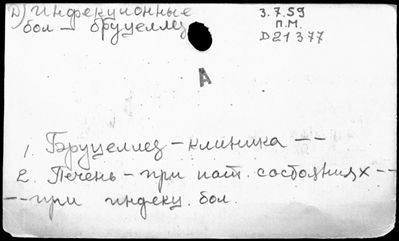 D) Инфекционные
бол – бруцеллез
3.7.59
П.М.
D21377
А
1. Бруцеллез – клиника – –
2. Печень – при пат. состояниях – –
– – при индекц. бол.